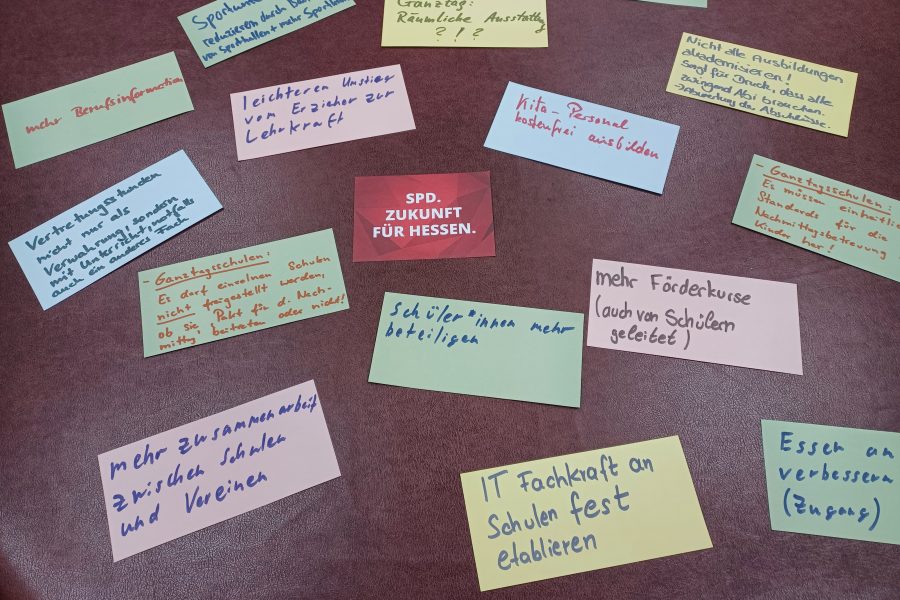 reduzieren durch
von Sporthallen + mehr
Ganztag:
Räumliche Ausstattg
? ! ?
Nicht alle Ausbildungen
akademisieren!
sorgt für Druck, dass alle
zwingend Abi brauchen.
→ Abwertung der Abschlüsse.
mehr Berufsinformation
leichteren Umstieg
vom Erzieher zur
Lehrkraft
Kita-Personal
kostenfrei ausbilden
Vertretungsstunden
nicht nur als
Verwahrung, sondern
mit Unterricht, notfalls
auch ein anderes Fach
SPD.
ZUKUNFT
FÜR HESSEN.
- Ganztagsschulen:
Es müssen einheitlic
Standards für die
Nachmittagsbetreuung
Kinder her!
- Ganztagsschulen:
Es darf einzelnen Schulen
nicht freigestellt werden,
ob sie "Pakt für d. Nach-
mittg" beitreten oder nicht!
Schüler*innen mehr
beteiligen
mehr Förderkurse
(auch von Schülern
geleitet)
mehr zusammenarbeit
zwischen Schulen
und Vereinen
IT Fachkraft an
Schulen fest
etablieren
Essen an
verbessern
(Zugang)